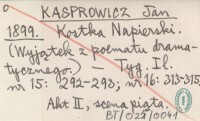 KASPROWICZ Jan
1899. Kostka Napierski.
(Wyjątek z poematu drama-
tycznego.) — Tyg. Il.
nr 15: 292-293; nr 16: 313-315.
Akt II, scena piąta.
BT/023/0041